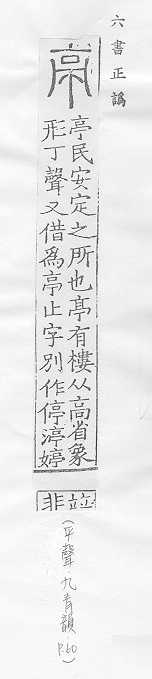 六書正譌
亭
亭民安定之所也亭有樓从高省象
形丁聲又借爲亭止字別作停渟婷
非竝
(平聲·九青韻 P.60)